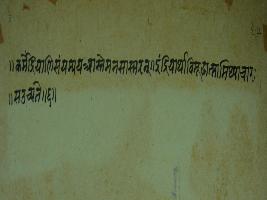 ॥कर्मेंद्रियाणिसंयम्ययआस्तेमनसास्मरन्॥इंद्रियार्थान्विमूढात्मामिथ्याचारः
॥सउच्यते॥६॥